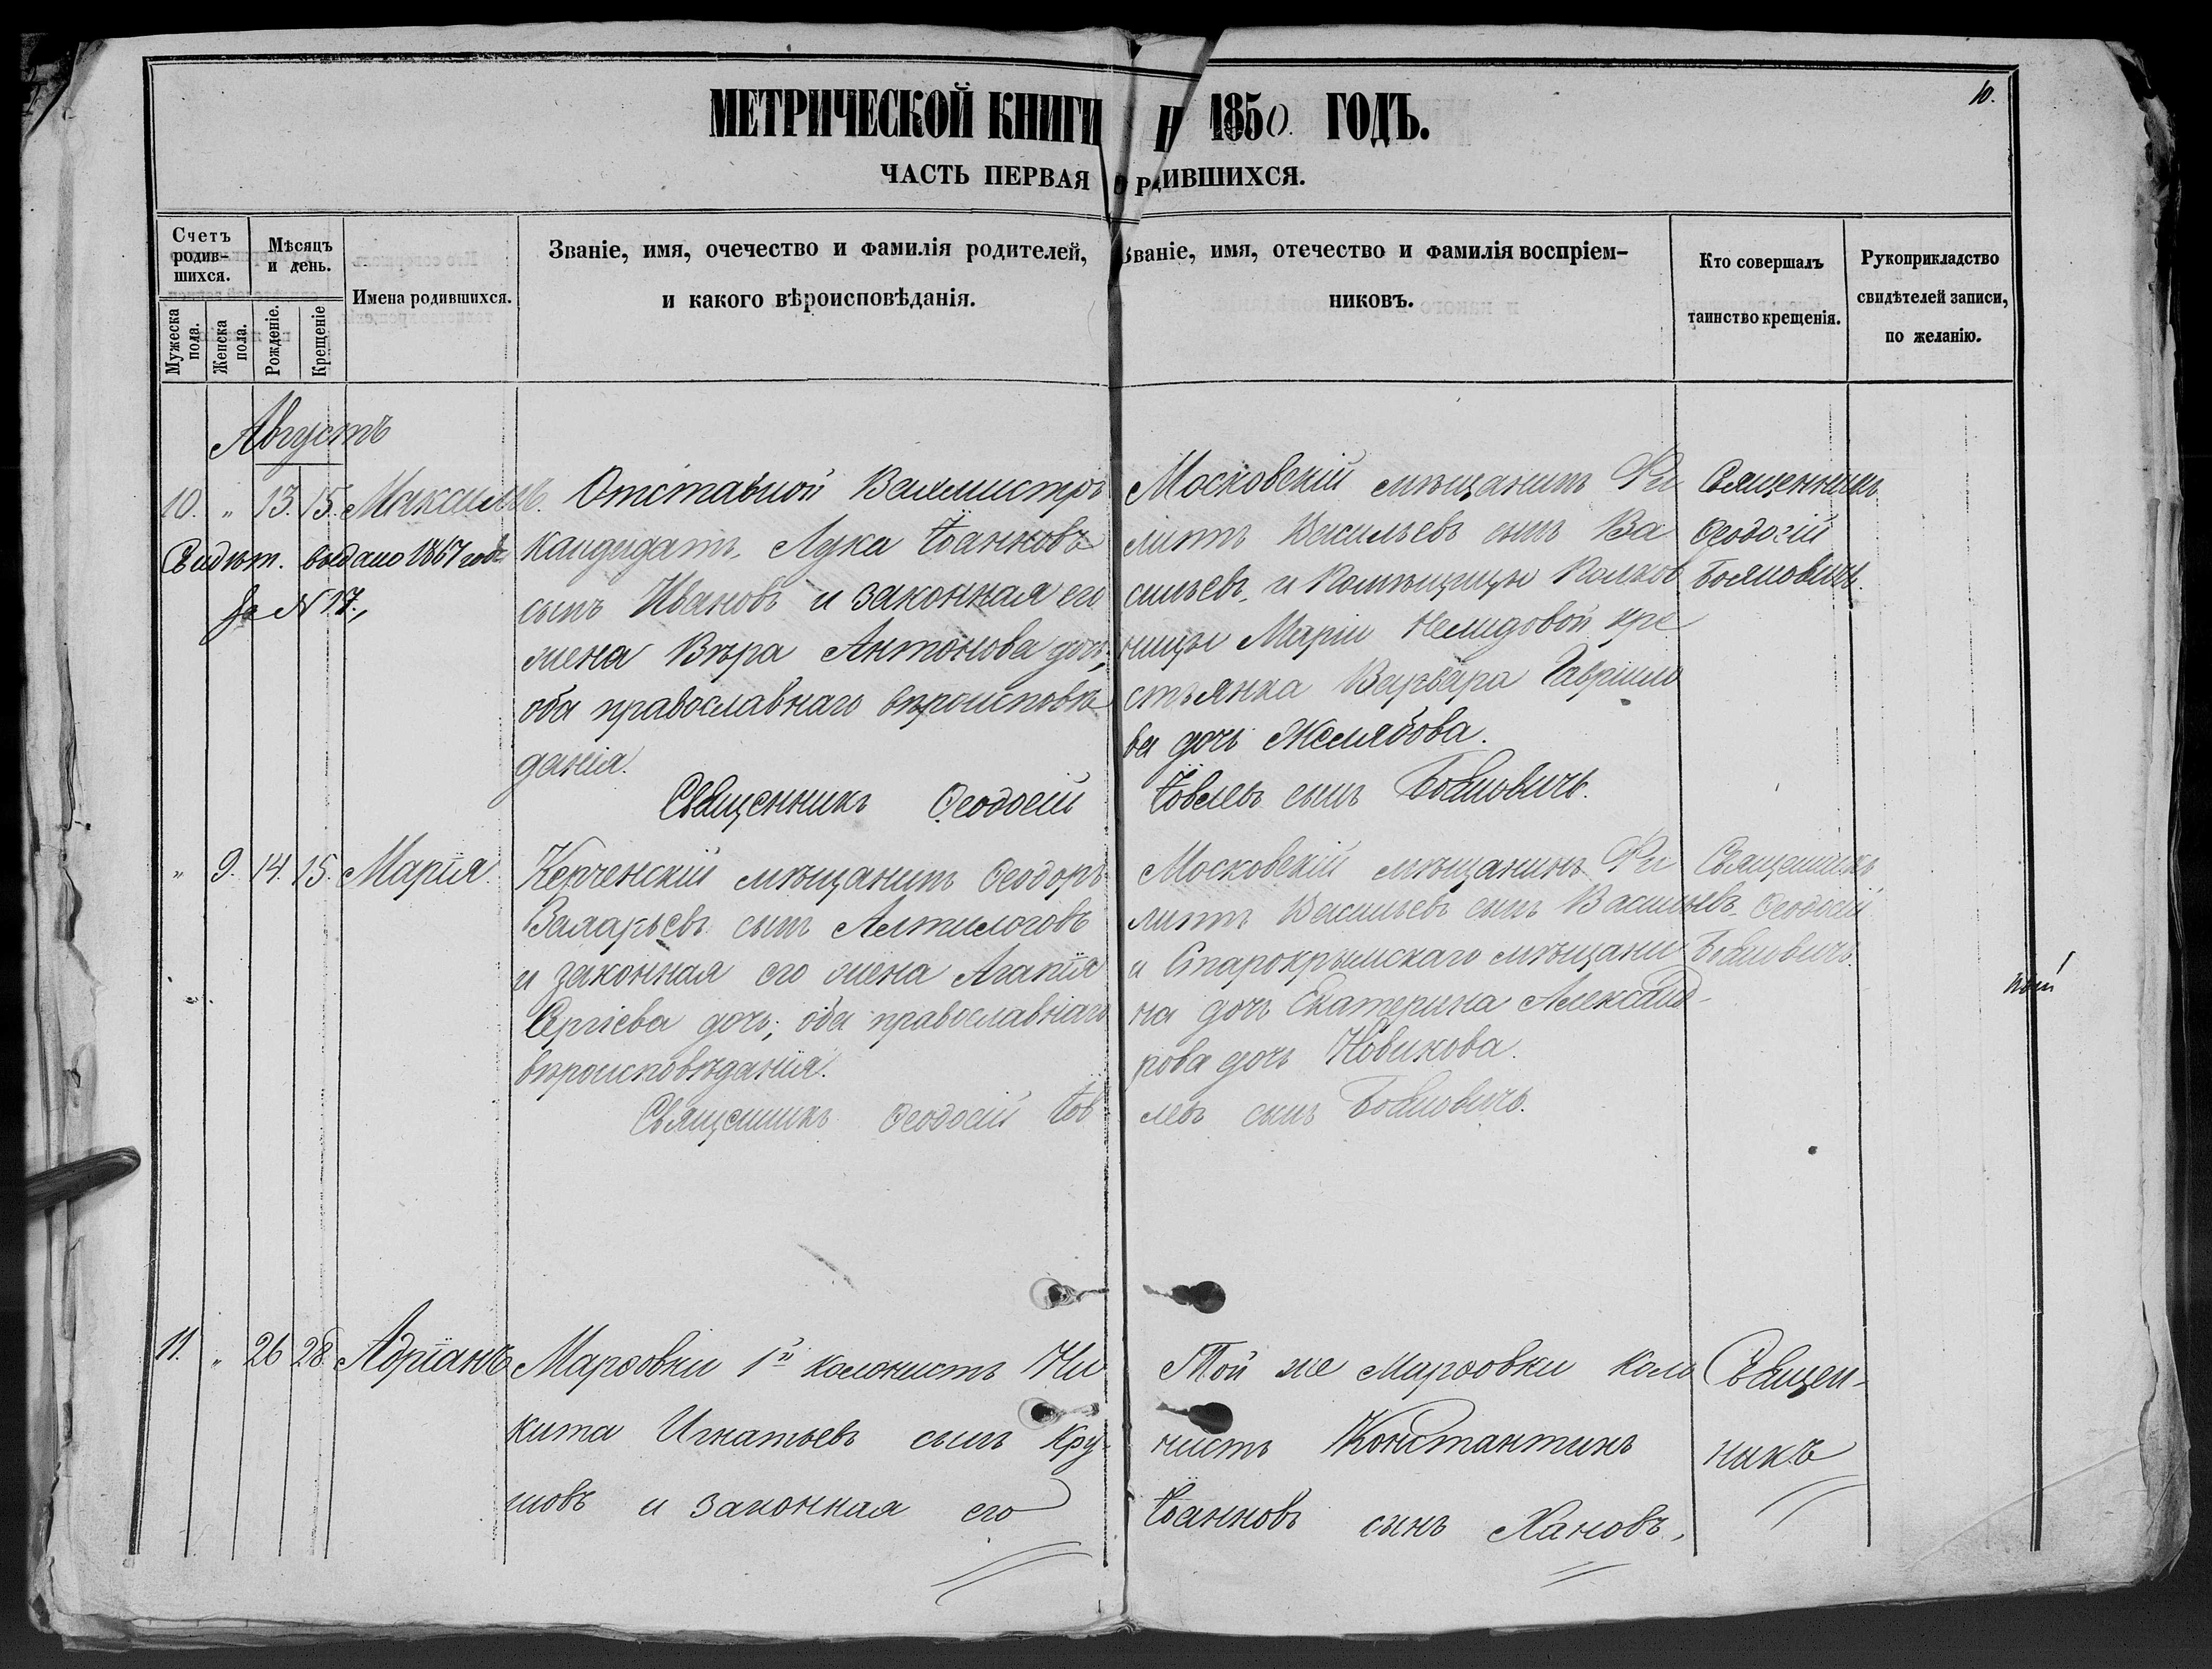 10.
МЕТРИЧЕСКОЙ КНИГИ Н 1850. ГОДЪ.
ЧАСТЬ ПЕРВАЯ О Р ДИВШИХСЯ.
Счетъ родив-
шихся.
Мужеска пола.
Женска пола.
Мѣсяцъ
и день.
Рожденіе.
Крещеніе
Имена родившихся.
Званіе, имя, очечество и фамилія родителей,
и какого вѣроисповѣданія.
Званіе, имя, отечество и фамилія воспріем-
никовъ.
Кто совершалъ
таинство крещенія.
Рукоприкладство
свидѣтелей записи,
по желанію.
Августъ
10. „ 13. 15. Максимъ.
Свидѣт. выдано 1867 года
за N 17.,
Отставной Вахмистръ
кандидатъ, Лука Іоанновъ
сынъ Ивановъ и законная его
жена Вѣра Антонова дочь;
оба православнаго вѣроисповѣ
данія.
Московскій мѣщанинъ Фи
липъ Васильевъ сынъ Ва
сильевъ, и Помѣщицы Полков
ницы Маріи Нелидовой кре
стьянка Варвара Гавріило
ва дочь Желябова.
Священникъ
Ѳеодосій
Бояновичъ.
Священникъ Ѳеодосій Іовлевъ сынъ Бояновичъ.
„ 9. 14. 15. Марія.
Керченскій мѣщанинъ Ѳеодоръ
сынъ Алтилоговъ
и законная его жена Агапія
Сергіева дочь; оба православнаго
вѣроисповѣданія.
Московскій мѣщанинъ Фи
липъ Васильевъ сынъ Васильевъ
и Старокрымскаго мѣщани
на дочь Екатерина Александ-
рова дочь Новикова.
Священникъ
Ѳеодосій
Бояновичъ.
Священникъ Ѳеодосій Іов
левъ сынъ Бояновичъ.
11. „ 26 28. Адріанъ
Марѳовки 1й колонистъ Ни
кита Игнатьевъ сынъ Кру-
шовъ и законная его
Той же Марѳовки коло
нистъ Константинъ
Іоанновъ сынъ Хановъ,
Священ-
никъ